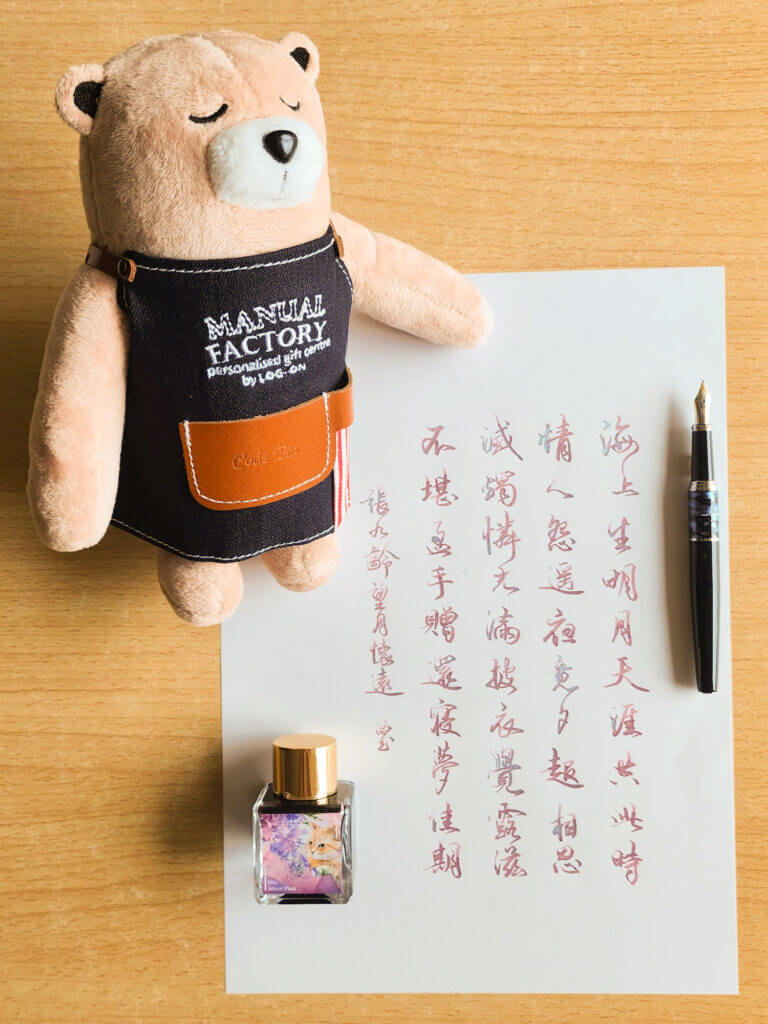 MANUAL
FACTORY
personalised gift centre
by LOG-ON
海上生明月天涯共此時
情人怨遙夜竟夕起相思
滅燭憐光滿披衣覺露滋
不堪盈手贈還寢夢佳期
張九齡望月懷遠
Silver Pink